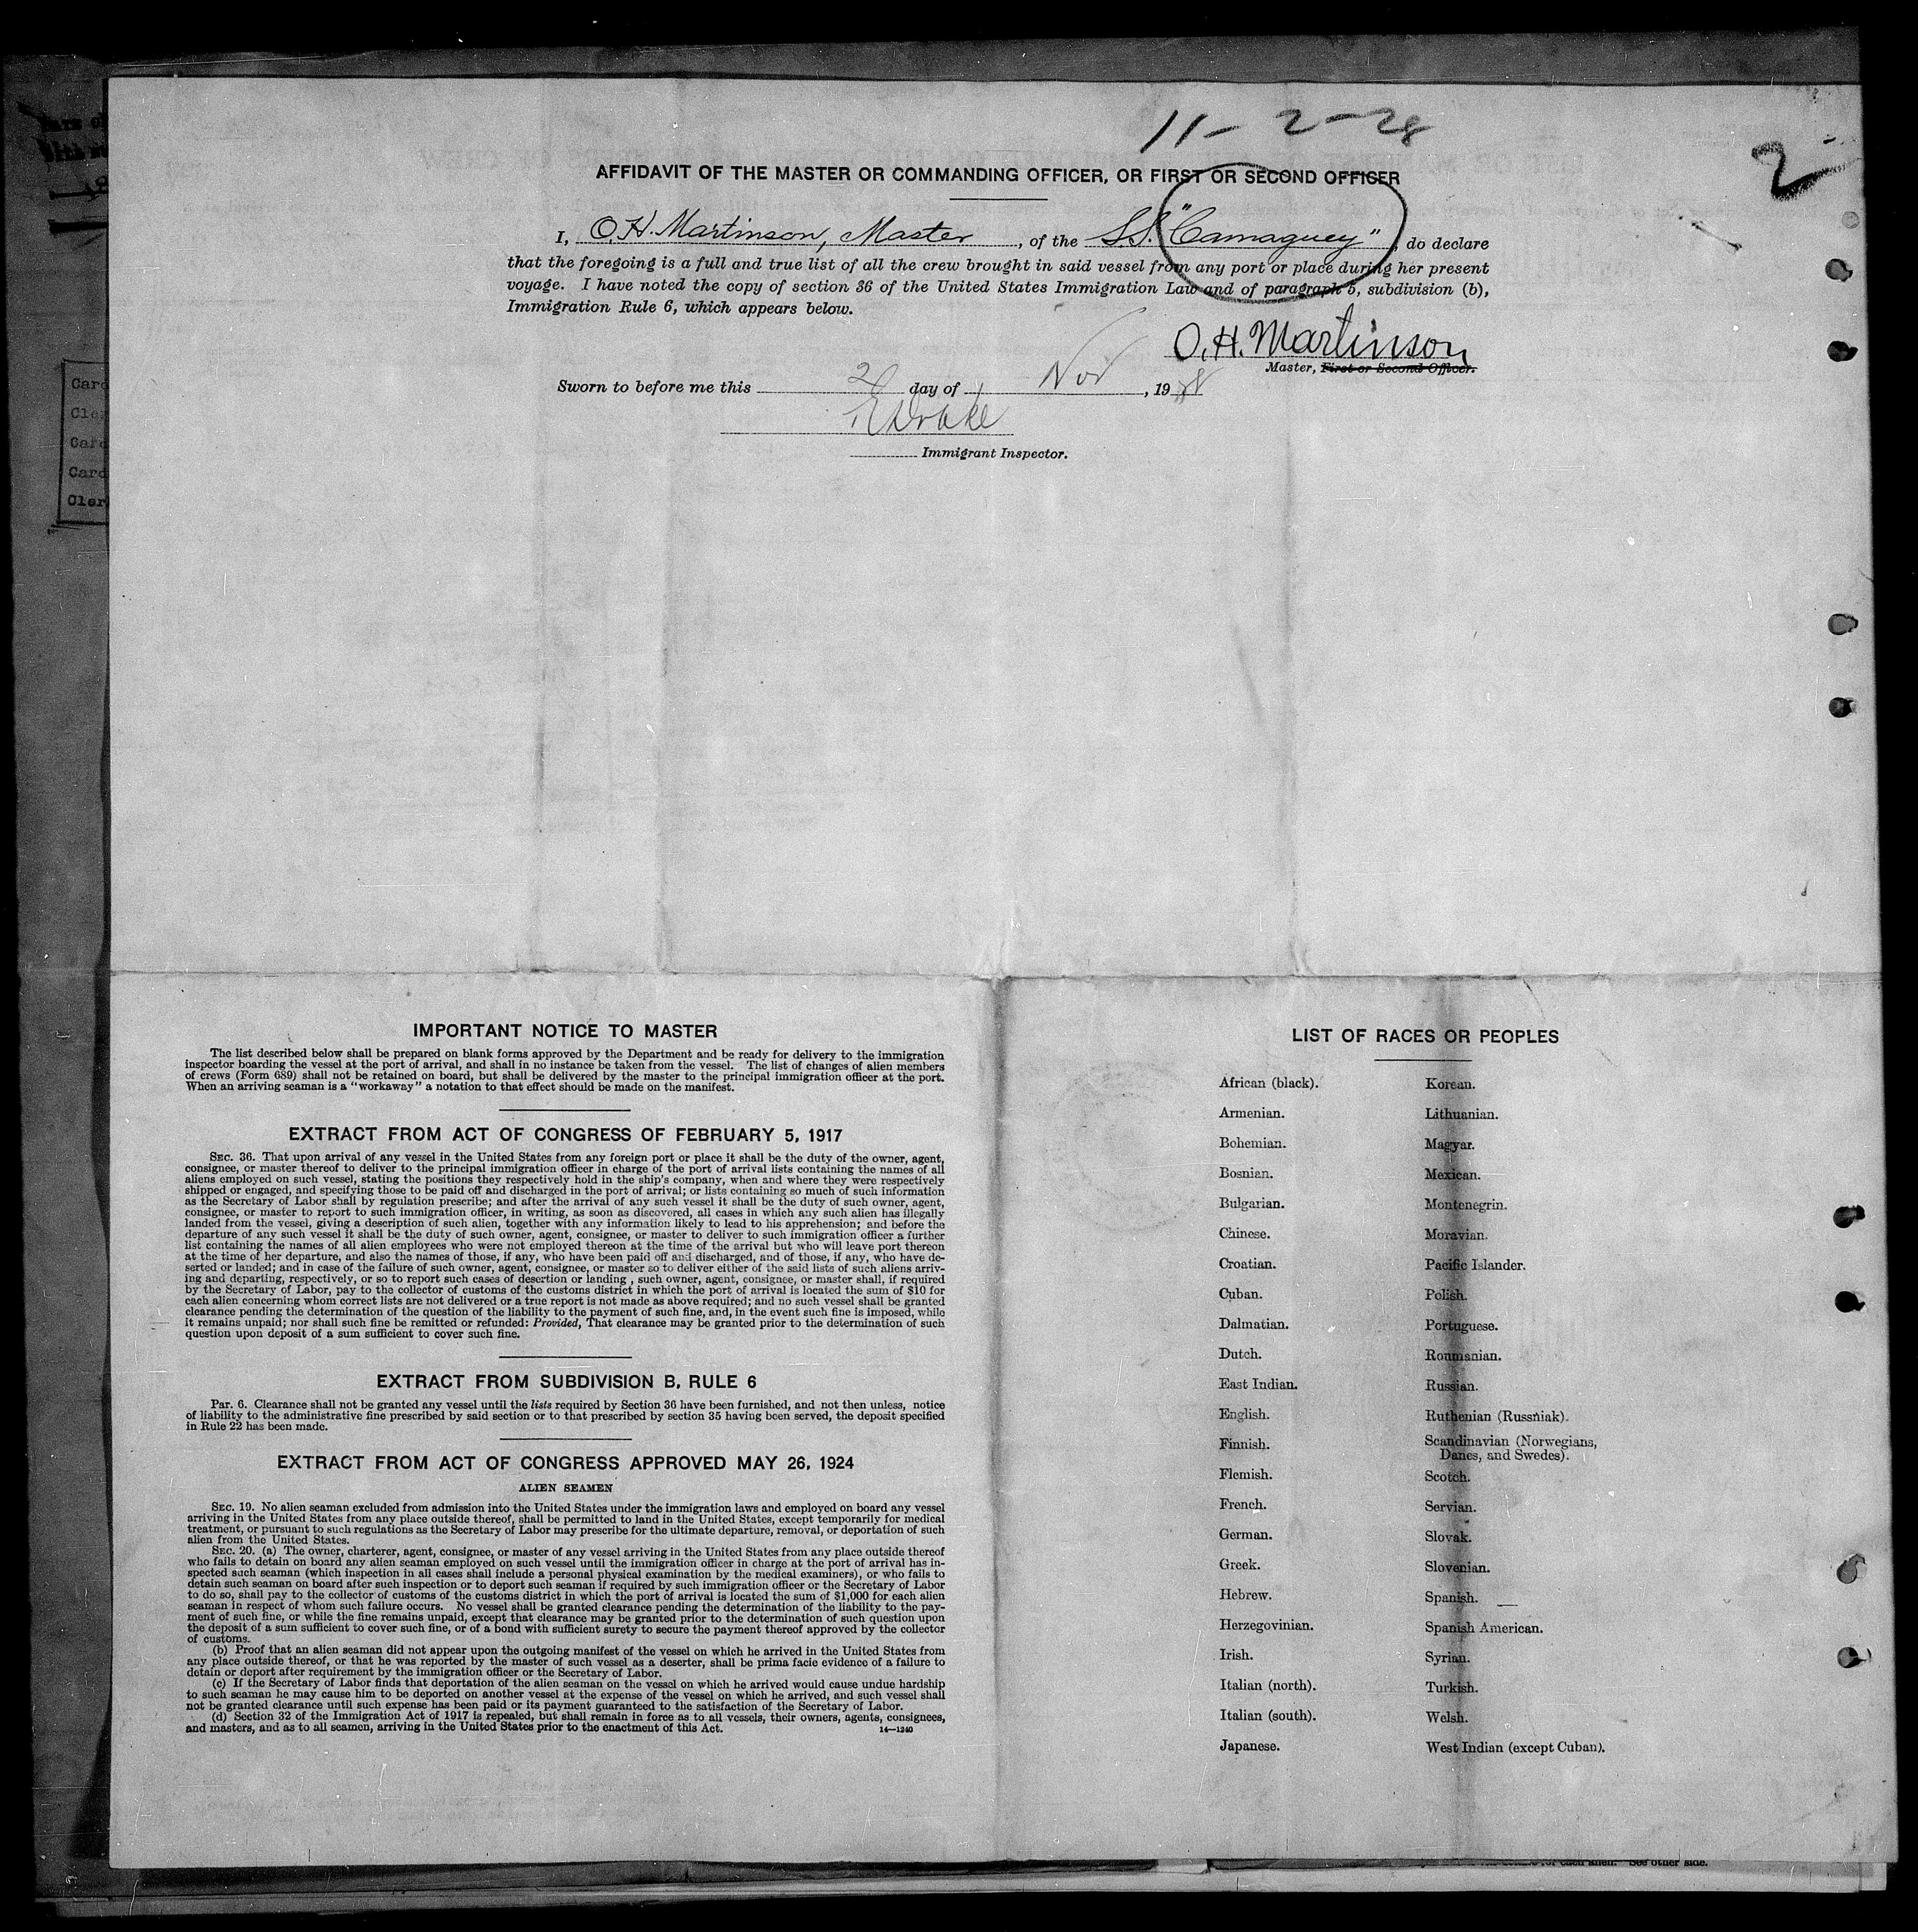 11-2-28
2
AFFIDAVIT OF THE MASTER OR COMMANDING OFFICER, OR FIRST OR SECOND OFFICER
I, O.H. Martinson, Master, of the S.S. "Camaguey", do declare
that the foregoing is a full and true list of all the crew brought in said vessel from any port or place during her present
voyage. I have noted the copy of section 36 of the United States Immigration Law and of paragraph 5, subdivision (b),
Immigration Rule 6, which appears below.
O. H. Martinson
Master, First or Second Officer.
Sworn to before me this 2 day of Nov, 1928
Immigrant Inspector.
Card
Cler
Card
Card
Cler
IMPORTANT NOTICE TO MASTER
The list described below shall be prepared on blank forms approved by the Department and be ready for delivery to the immigration
inspector boarding the vessel at the port of arrival, and shall in no instance be taken from the vessel. The list of changes of alien members
of crews (Form 689) shall not be retained on board, but shall be delivered by the master to the principal immigration officer at the port.
When an arriving seaman is a "workaway" a notation to that effect should be made on the manifest.
EXTRACT FROM ACT OF CONGRESS OF FEBRUARY 5, 1917
SEC. 36. That upon arrival of any vessel in the United States from any foreign port or place it shall be the duty of the owner, agent,
consignee, or master thereof to deliver to the principal immigration officer in charge of the port of arrival lists containing the names of all
aliens employed on such vessel, stating the positions they respectively hold in the ship's company, when and where they were respectively
shipped or engaged, and specifying those to be paid off and discharged in the port of arrival; or lists containing so much of such information
as the Secretary of Labor shall by regulation prescribe; and after the arrival of any such vessel it shall be the duty of such owner, agent,
consignee, or master to report to such immigration officer, in writing, as soon as discovered, all cases in which any such alien has illegally
landed from the vessel, giving a description of such alien, together with any information likely to lead to his apprehension; and before the
departure of any such vessel it shall be the duty of such owner, agent, consignee, or master to deliver to such immigration officer a further
list containing the names of all alien employees who were not employed thereon at the time of the arrival but who will leave port thereon
at the time of her departure, and also the names of those, if any, who have been paid off and discharged, and of those, if any, who have de-
serted or landed; and in case of the failure of such owner, agent, consignee, or master so to deliver either of the said lists of such aliens arriv-
ing and departing, respectively, or so to report such cases of desertion or landing , such owner, agent, consignee, or master shall, if required
by the Secretary of Labor, pay to the collector of customs of the customs district in which the port of arrival is located the sum of $10 for
each alien concerning whom correct lists are not delivered or a true report is not made as above required; and no such vessel shall be granted
clearance pending the determination of the question of the liability to the payment of such fine, and, in the event such fine is imposed, while
it remains unpaid; nor shall such fine be remitted or refunded: Provided, That clearance may be granted prior to the determination of such
question upon deposit of a sum sufficient to cover such fine.
EXTRACT FROM SUBDIVISION B, RULE 6
Par. 6. Clearance shall not be granted any vessel until the lists required by Section 36 have been furnished, and not then unless, notice
of liability to the administrative fine prescribed by said section or to that prescribed by section 35 having been served, the deposit specified
in Rule 22 has been made.
EXTRACT FROM ACT OF CONGRESS APPROVED MAY 26, 1924
ALIEN SEAMEN
SEC. 19. No alien seaman excluded from admission into the United States under the immigration laws and employed on board any vessel
arriving in the United States from any place outside thereof, shall be permitted to land in the United States, except temporarily for medical
treatment, or pursuant to such regulations as the Secretary of Labor may prescribe for the ultimate departure, removal, or deportation of such
alien from the United States.
SEC. 20. (a) The owner, charterer, agent, consignee, or master of any vessel arriving in the United States from any place outside thereof
who fails to detain on board any alien seaman employed on such vessel until the immigration officer in charge at the port of arrival has in-
spected such seaman (which inspection in all cases shall include a personal physical examination by the medical examiners), or who fails to
detain such seaman on board after such inspection or to deport such seaman if required by such immigration officer or the Secretary of Labor
to do so, shall pay to the collector of customs of the customs district in which the port of arrival is located the sum of $1,000 for each alien
seaman in respect of whom such failure occurs. No vessel shall be granted clearance pending the determination of the liability to the pay-
ment of such fine, or while the fine remains unpaid, except that clearance may be granted prior to the determination of such question upon
the deposit of a sum sufficient to cover such fine, or of a bond with sufficient surety to secure the payment thereof approved by the collector
of customs.
(b) Proof that an alien seaman did not appear upon the outgoing manifest of the vessel on which he arrived in the United States from
any place outside thereof, or that he was reported by the master of such vessel as a deserter, shall be prima facie evidence of a failure to
detain or deport after requirement by the immigration officer or the Secretary of Labor.
(c) If the Secretary of Labor finds that deportation of the alien seaman on the vessel on which he arrived would cause undue hardship
to such seaman he may cause him to be deported on another vessel at the expense of the vessel on which he arrived, and such vessel shall
not be granted clearance until such expense has been paid or its payment guaranteed to the satisfaction of the Secretary of Labor.
(d) Section 32 of the Immigration Act of 1917 is repealed, but shall remain in force as to all vessels, their owners, agents, consignees,
and masters, and as to all seamen, arriving in the United States prior to the enactment of this Act.
14—1240
LIST OF RACES OR PEOPLES
African (black).
Armenian.
Bohemian.
Bosnian.
Bulgarian.
Chinese.
Croatian.
Cuban.
Dalmatian.
Dutch.
East Indian.
English.
Finnish.
Flemish.
French.
German.
Greek.
Hebrew.
Herzegovinian.
Irish.
Italian (north).
Italian (south).
Japanese.
Korean.
Lithuanian.
Magyar.
Mexican.
Montenegrin.
Moravian.
Pacific Islander.
Polish.
Portuguese.
Roumanian.
Russian.
Ruthenian (Russniak).
Scandinavian (Norwegians,
Danes, and Swedes).
Scotch.
Servian.
Slovak.
Slovenian.
Spanish.
Spanish American.
Syrian.
Turkish.
Welsh.
West Indian (except Cuban).
See other side.